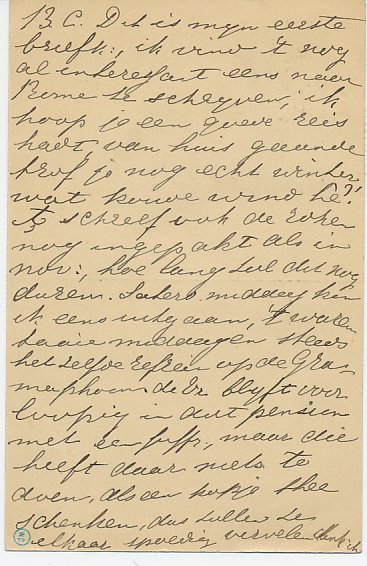 B. C. Dit is mijn eerste
briefk:, ik vind 't nog
al interessant eens naar
Rome te schryven; ik
hoop je een goede reis
hadt, van huis gaande
trof je nog echt winter
wat kouwe wind hè?!
schreef ook de
nog ingepakt als in
nov:, hoe lang zal dit nog
duren. Zaters middag kon
ik eens uitgaan, 't waren
saaie middagen steeds
hetzelfde refrein op de Gra-
maphoon. de Er blyft voor
loopig in dat pension
met een juffr, maar die
heeft daar niets te
doen, als een kopje thee
schenken, dus zullen ze
elkaar spoedig vervelen denk ik